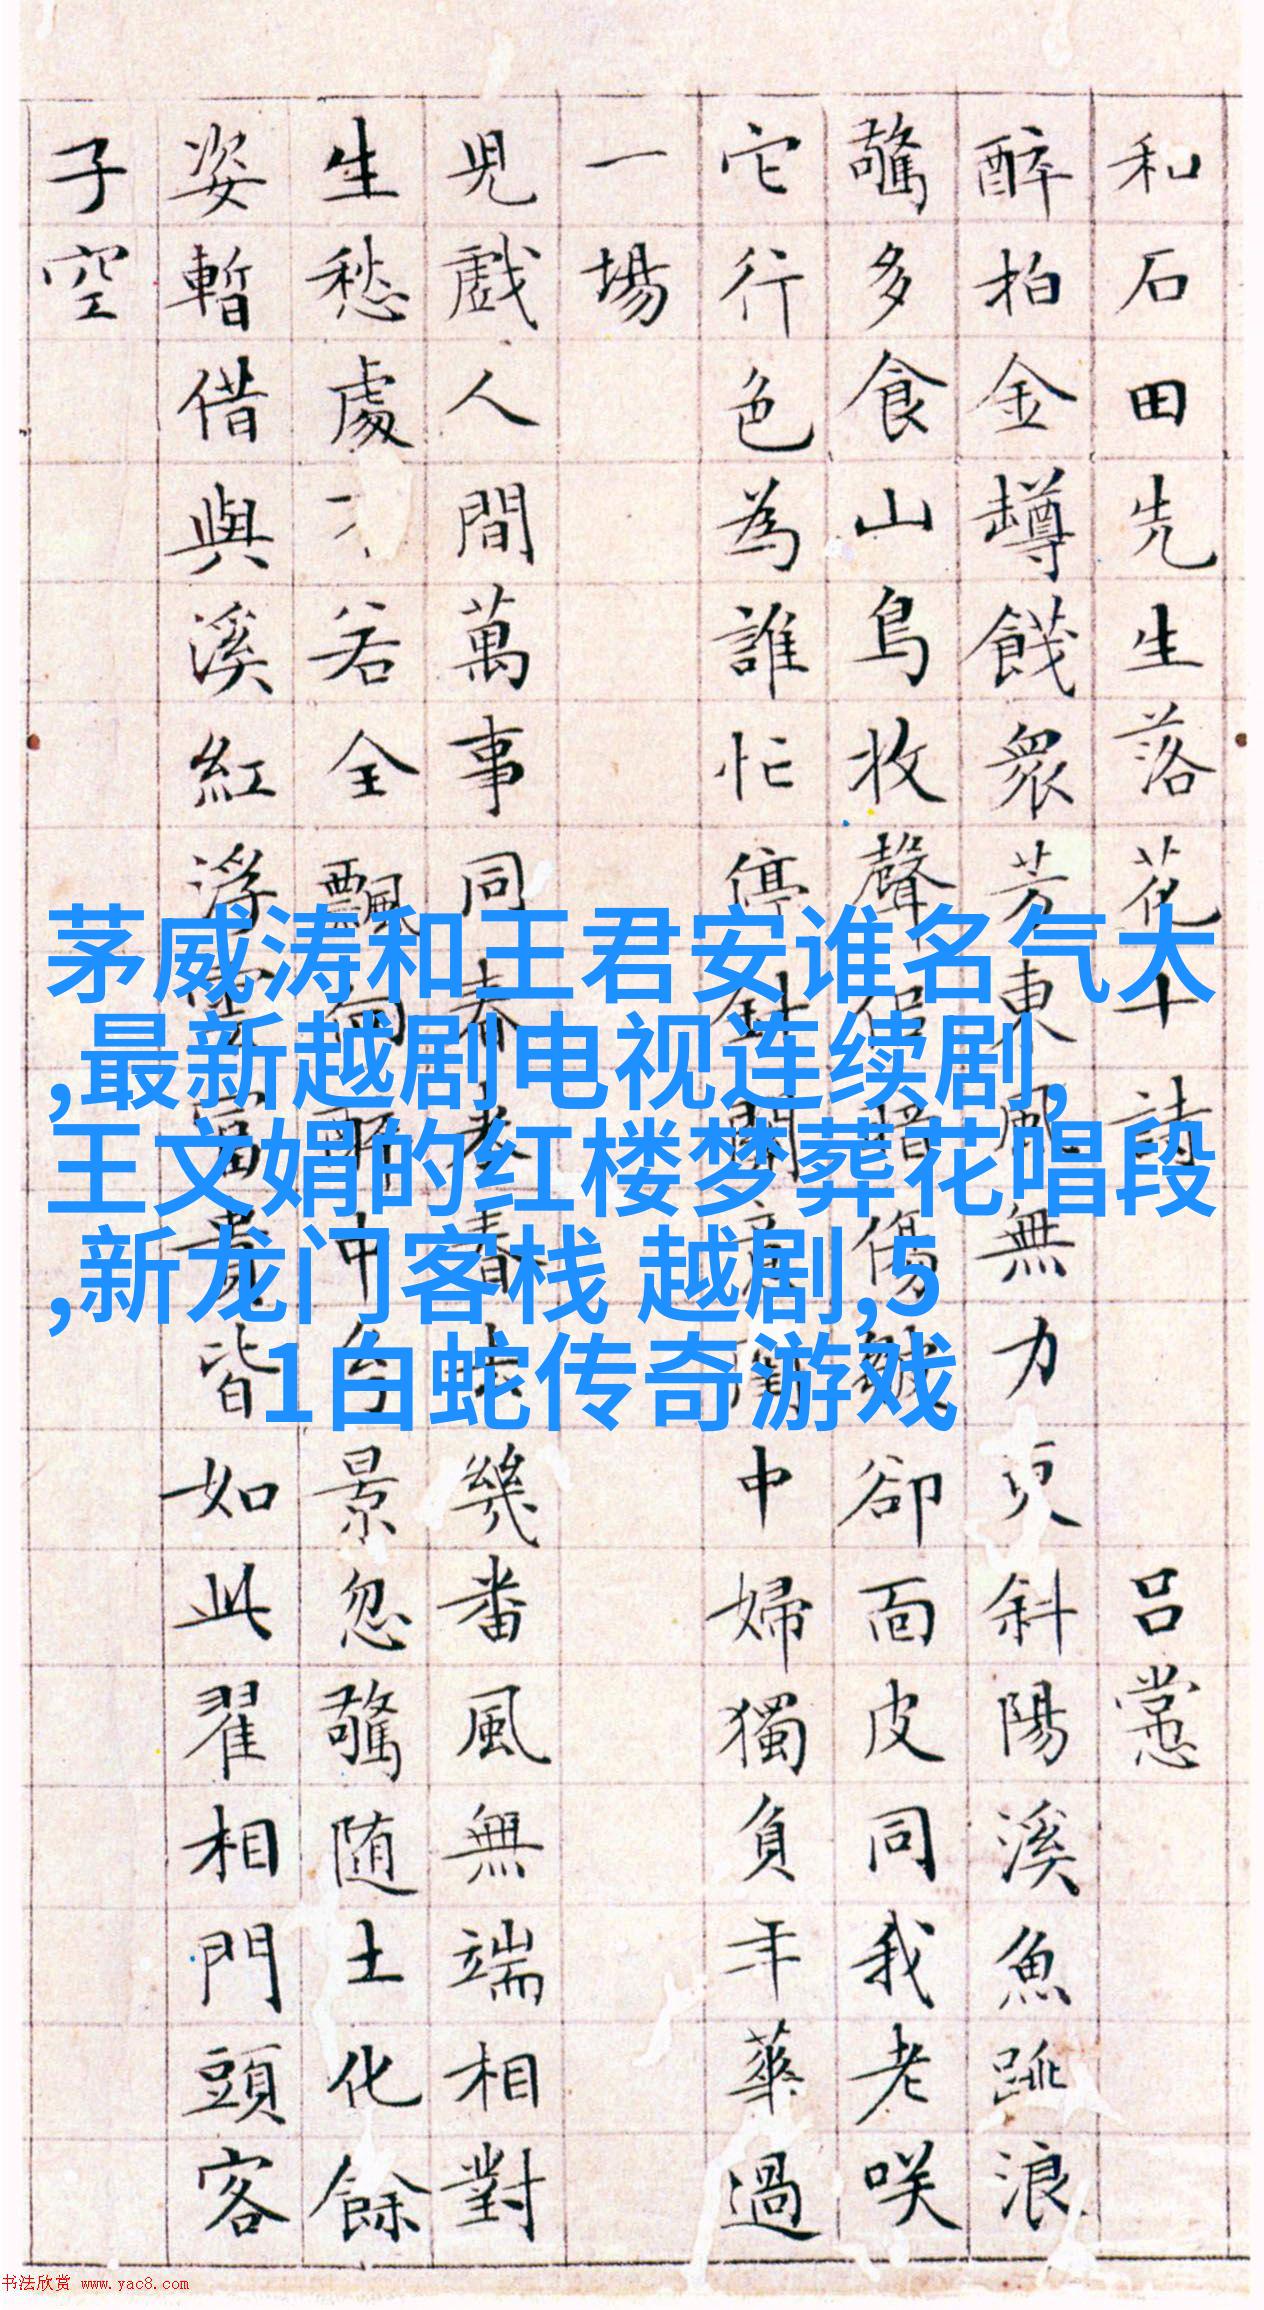 和石田先生落花十詩 呂㦂
醉拍金罇餞衆芳東風無力更斜陽溪魚跳浪
驚多食山鳥收聲侣惜傷皺卻面皮同我老咲
它行色為誰忙停針閒意閨中婦獨負年華過
一場
兒戲人間萬事同春來春去幾番風無端相對
生愁處若全飄中景忽驚随土化餘
姿暫借與溪紅浮雲富貴皆如此翟相門頭客
子空
茅威涛和王君安谁名气大
,最新越剧电视连续剧,
王文娟的红楼梦葬花唱段
,新龙门客栈 越剧,5
1白蛇传奇游戏
书法欣赏 www.yac8.com